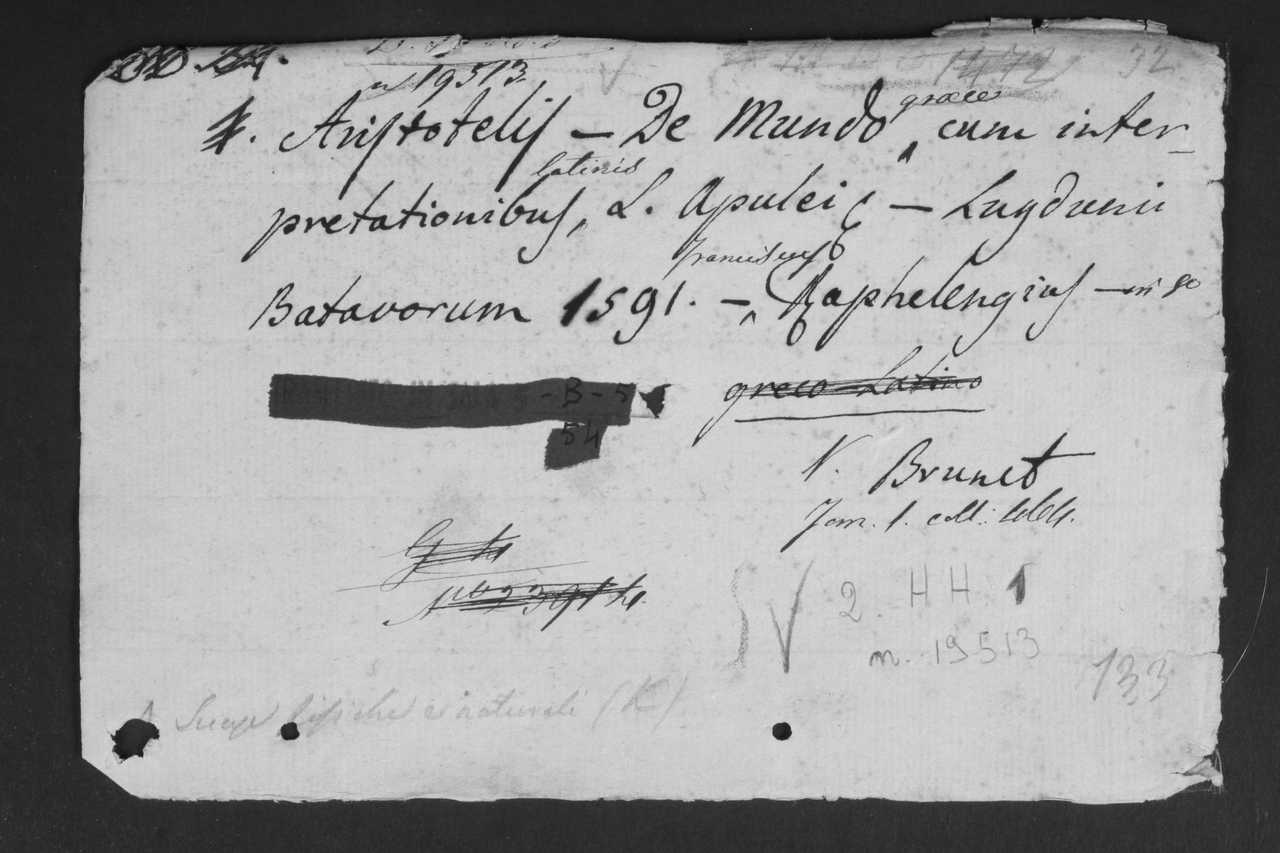 n 19513
1472 32
1. Aristotelis — De Mundo græce cum inter-
pretationibus latinis L. Apulei — Lugduni
Batavorum 1591. — Franciscus Raphelengius — in 8o
- B - 5
54
greco-Latino
V. Brunet
Tom. 1. coll: 464.
No 2391
2. HH 1
n. 19513
133
fisiche e naturali (K)